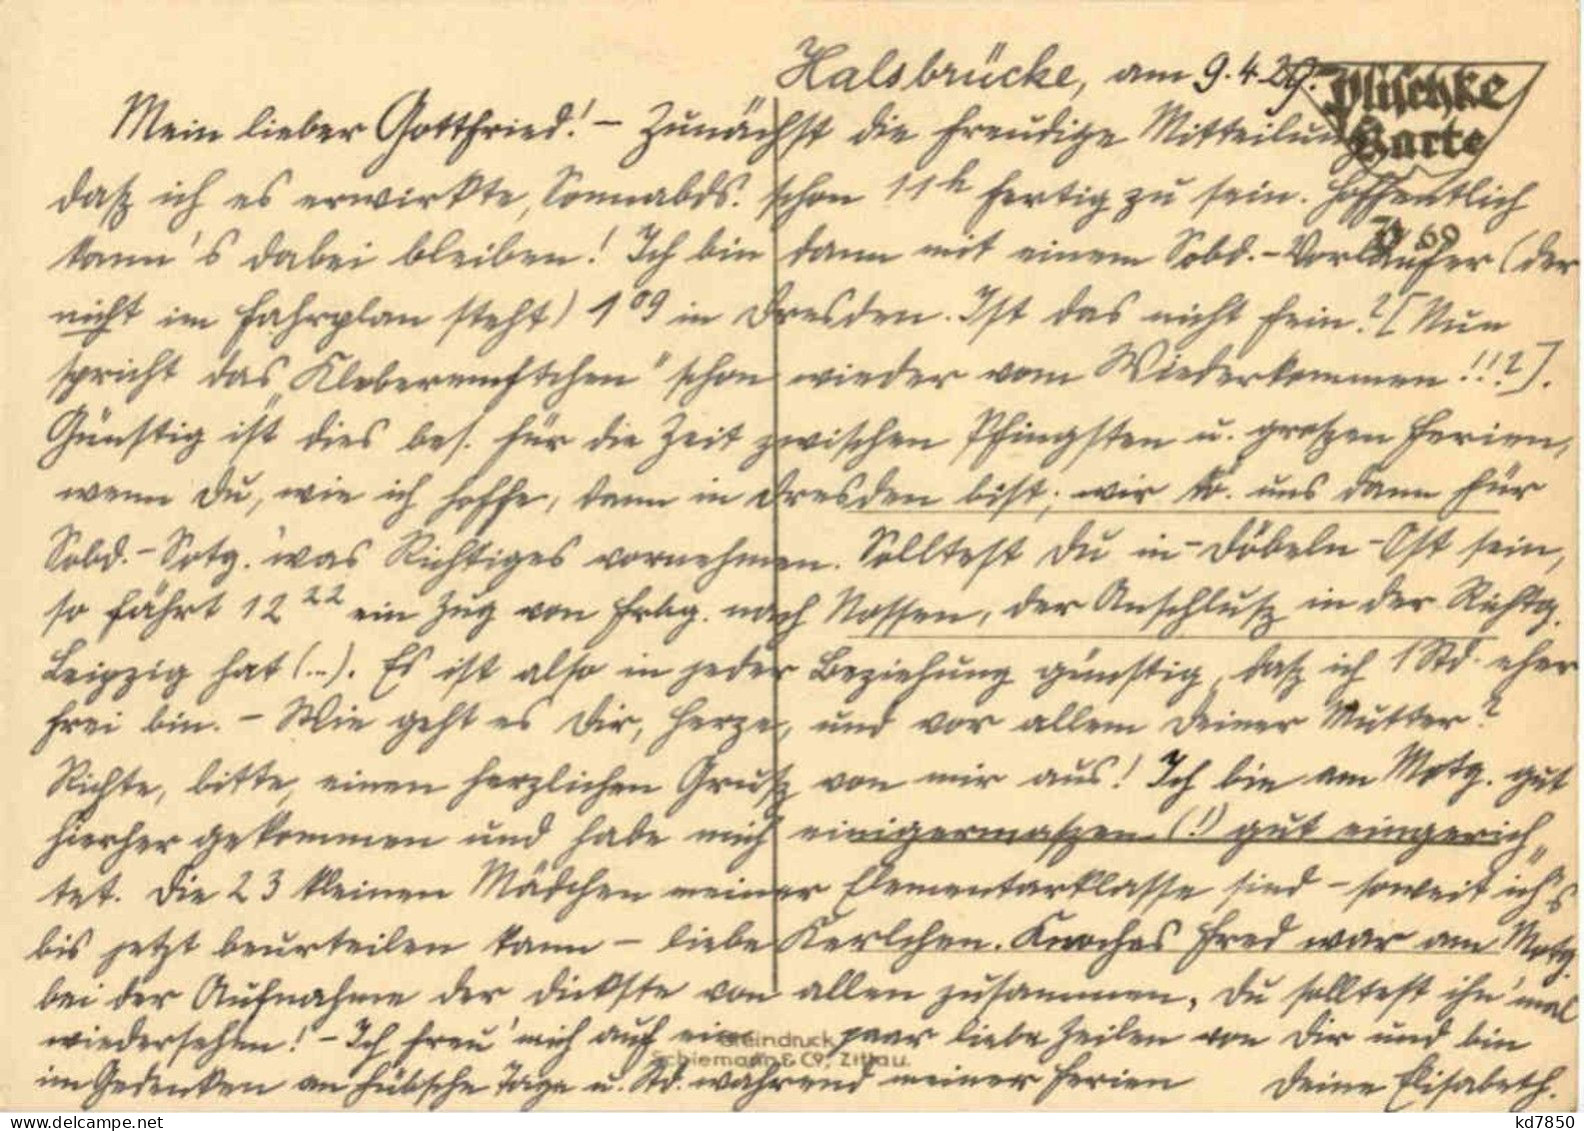 Halsbrücke, am 9.4.29.
Plischke
Karte
Mein lieber Gottfried! – Zunächst die freudige Mitteilung
P 69
daß ich es erwirkte, Sonnabds. schon 11h fertig zu sein. Hoffentlich
kann's dabei bleiben! Ich bin dann mit einem Sobd.-Vorläufer (der
nicht im Fahrplan steht) 1 09 in Dresden. Ist das nicht fein? [Nun
spricht das schon wieder vom Wiederkommen!!!?].
Günstig ist dies bes. für die Zeit zwischen Pfingsten u. großen Ferien,
wenn Du, wie ich hoffe, dann in Dresden bist; wir kö. uns dann für
Sobd.-Sotg. was Richtiges vornehmen. Solltest Du in Döbeln-Ost sein,
so fährt 12 22 ein Zug von Frbg. nach Nossen, der Anschluß in der Richtg.
Leipzig hat (...). Es ist also in jeder Beziehung günstig, daß ich 1 Std. eher
frei bin. – Wie geht es Dir, Herze, und vor allem Deiner Mutter?
Richte, bitte, einen herzlichen Gruß von mir aus! Ich bin am Motg. gut
hierher gekommen und habe mich einigermaßen (!) gut eingerich„
tet. Die 23 kleinen Mädchen meiner Elementarklasse sind – soweit ich's
bis jetzt beurteilen kann – liebe Kerlchen. Knoches Fred war am Motg.
bei der Aufnahme der dickste von allen zusammen, Du solltest ihn 'mal
wiedersehen! – Ich freu' mich auf ein paar liebe Zeilen von Dir und bin
Steindruck
Schiemann & Co, Zittau.
im Gedenken an hübsche Tage u. Std. während meiner Ferien Deine Elisabeth.
www.delcampe.net
kd7850